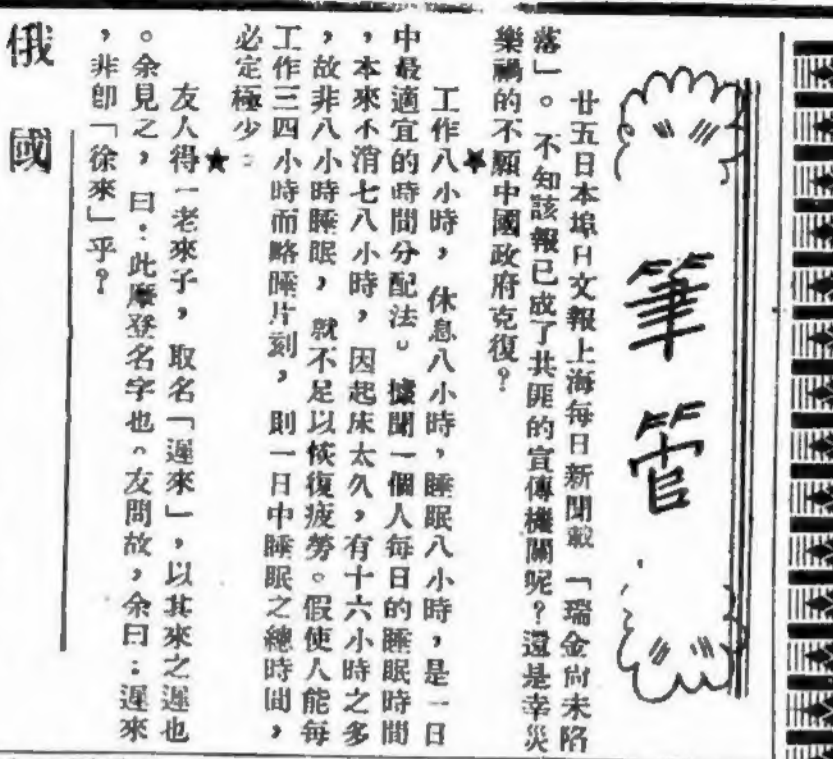 筆管
廿五日本埠日文報上海每日新聞載「瑞金尙未陷
落」。不知該報已成了共匪的宣傳機關呢?還是幸災
樂禍的不願中國政府克復?
★
工作八小時,休息八小時,睡眠八小時,是一日
中最適宜的時間分配法。據聞一個人每日的睡眠時間
,本來不消七八小時,因起床太久,有十六小時之多
,故非八小時睡眠,就不足以恢復疲勞。假使人能每
工作三四小時而略睡片刻,則一日中睡眠之總時間,
必定極少:
★
友人得一老來子,取名「遲來」,以其來之遲也
。余見之,曰:此摩登名字也。友問故,余曰:遲來
,非卽「徐來」乎?
俄國